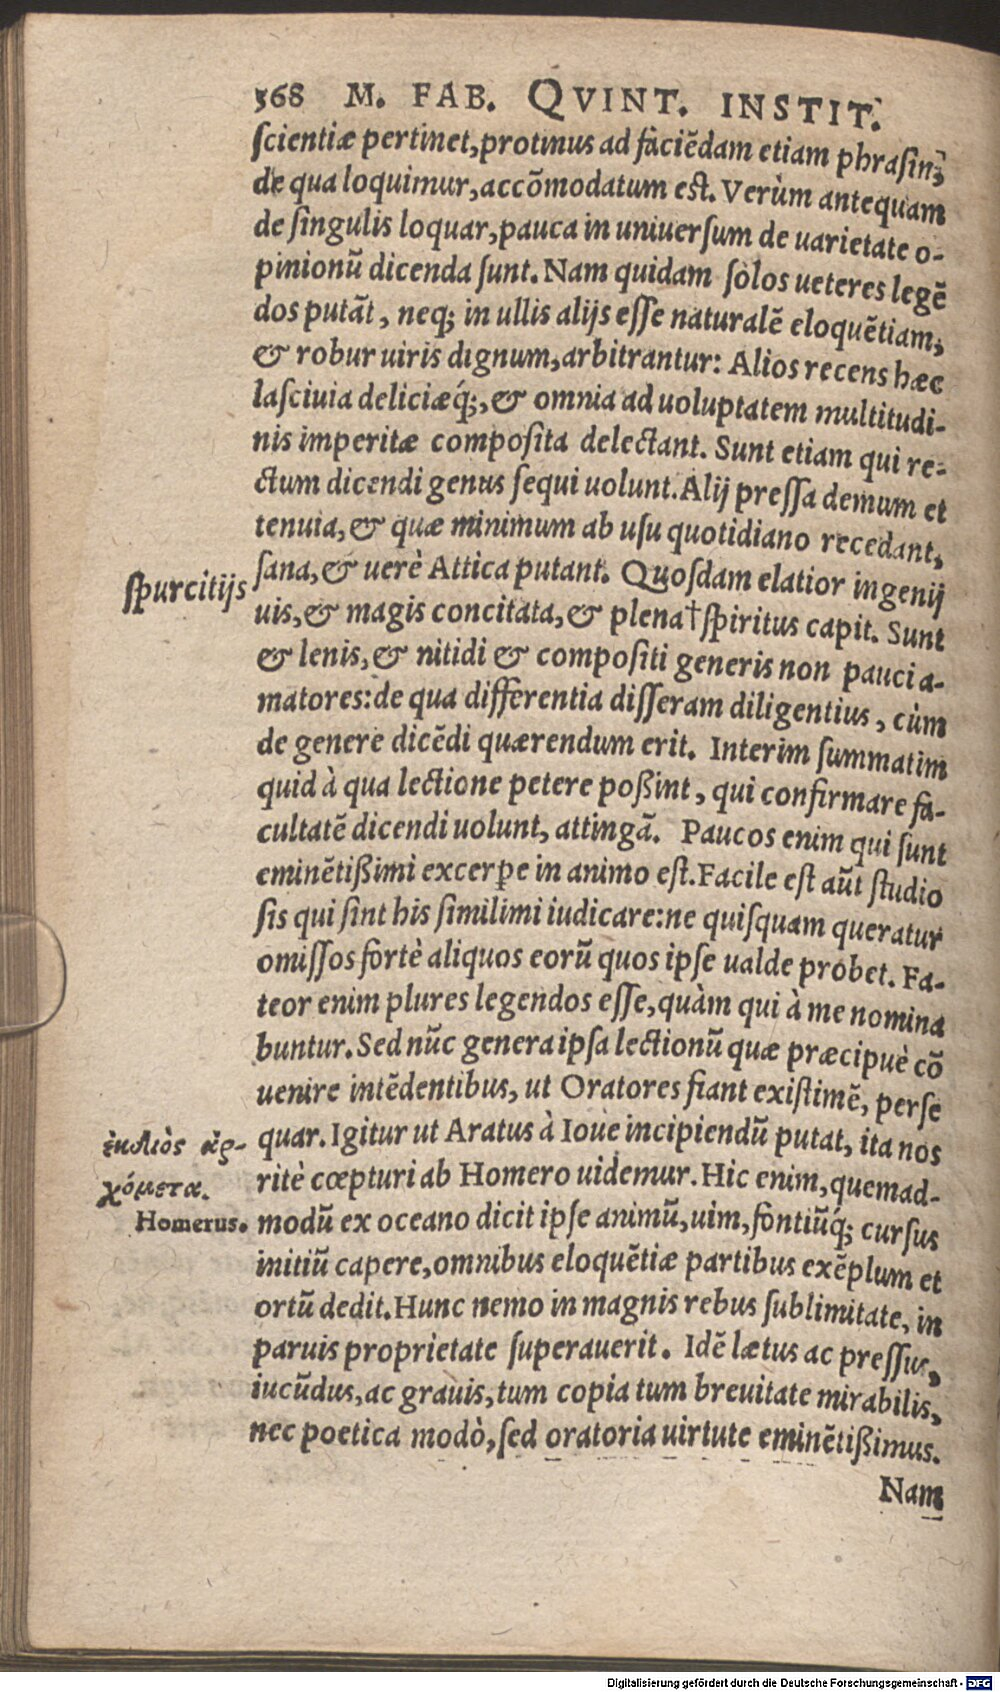 368 M. FAB. QVINT. INSTIT.
scientiæ pertinet, protinus ad faciēdam etiam phrasin,
de qua loquimur, accōmodatum est. Verùm antequam
de singulis loquar, pauca in uniuersum de uarietate o-
pinionū dicenda sunt. Nam quidam solos ueteres legē
dos putāt, neq; in ullis alijs esse naturalē eloquētiam,
& robur uiris dignum, arbitrantur: Alios recens hæc
lasciuia deliciæq́;, & omnia ad uoluptatem multitudi-
nis imperitæ composita delectant. Sunt etiam qui re-
ctum dicendi genus sequi uolunt. Alij pressa demum et
tenuia, & quæ minimum ab usu quotidiano recedant,
sana, & uerè Attica putant. Quosdam elatior ingenij
spurcitijs
uis, & magis concitata, & plena† spiritus capit. Sunt
& lenis, & nitidi & compositi generis non pauci a-
matores: de qua differentia disseram diligentius, cùm
de genere dicēdi quærendum erit. Interim summatim
quid à qua lectione petere poßint, qui confirmare fa-
cultatē dicendi uolunt, attingā. Paucos enim qui sunt
eminētißimi excerpe in animo est. Facile est aūt studio
sis qui sint his similimi iudicare: ne quisquam queratur
omissos fortè aliquos eorū quos ipse ualde probet. Fa-
teor enim plures legendos esse, quàm qui à me nomina
buntur. Sed nūc genera ipsa lectionū quæ præcipuè cō
uenire intēdentibus, ut Oratores fiant existimē, perse
quar. Igitur ut Aratus à Ioue incipiendū putat, ita nos
ἐκ διὸς ἀρ-
χόμετα.
ritè cœpturi ab Homero uidemur. Hic enim, quemad-
Homerus.
modū ex oceano dicit ipse animū, uim, fontiūq́; cursus
initiū capere, omnibus eloquētiæ partibus exēplum et
ortū dedit. Hunc nemo in magnis rebus sublimitate, in
paruis proprietate superauerit. Idē lætus ac pressus,
iucūdus, ac grauis, tum copia tum breuitate mirabilis,
nec poetica modò, sed oratoria uirtute eminētißimus.
Nam
Digitalisierung gefördert durch die Deutsche Forschungsgemeinschaft - DFG